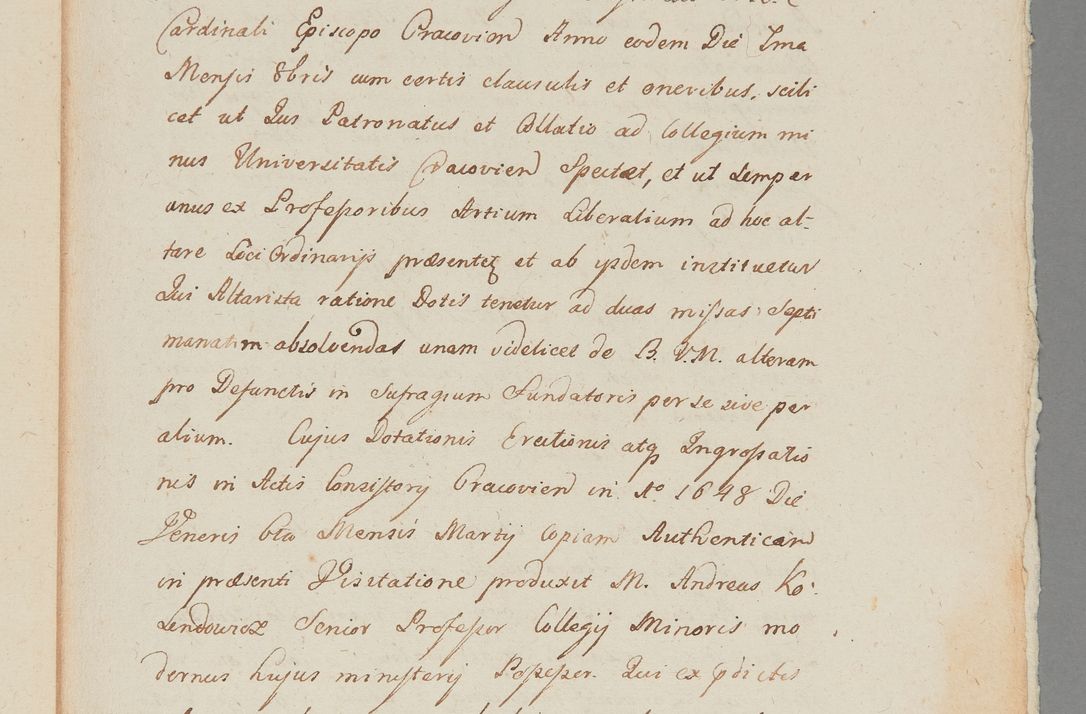 Cardinali Episcopo Cracovien Anno eodem Die Ima
Mensis 8bris cum certis clausulis et oneribus, scili
cet ut Jus Patronatus et Collatio ad Collegium mi
nus Universitatis Cracovien Spectet, et ut semper
unus ex Professoribus Artium Liberalium ad hoc al-
tare Loci Ordinarijs præsentetz et ab ijsdem instituetur
Qui Altarista ratione Dotis tenetur ad duas missas Septi
manatim absolvendas unam videlicet de B. V. M. alteram
pro Defunctis in Sufragium Fundatoris per se sive per
alium. Cujus Dotationis Erectionis atq Ingrossatio
nis in Actis Consistorij Cracovien in Aº 1648 Die
Veneris 6ta Mensis Martij Copiam Authenticam
in præsenti Visitatione produxit M. Andreas Ko:
Lendowicz Senior Professor Collegij Minoris mo
dernus hujus ministerij Possessor. Qui ex pdictis